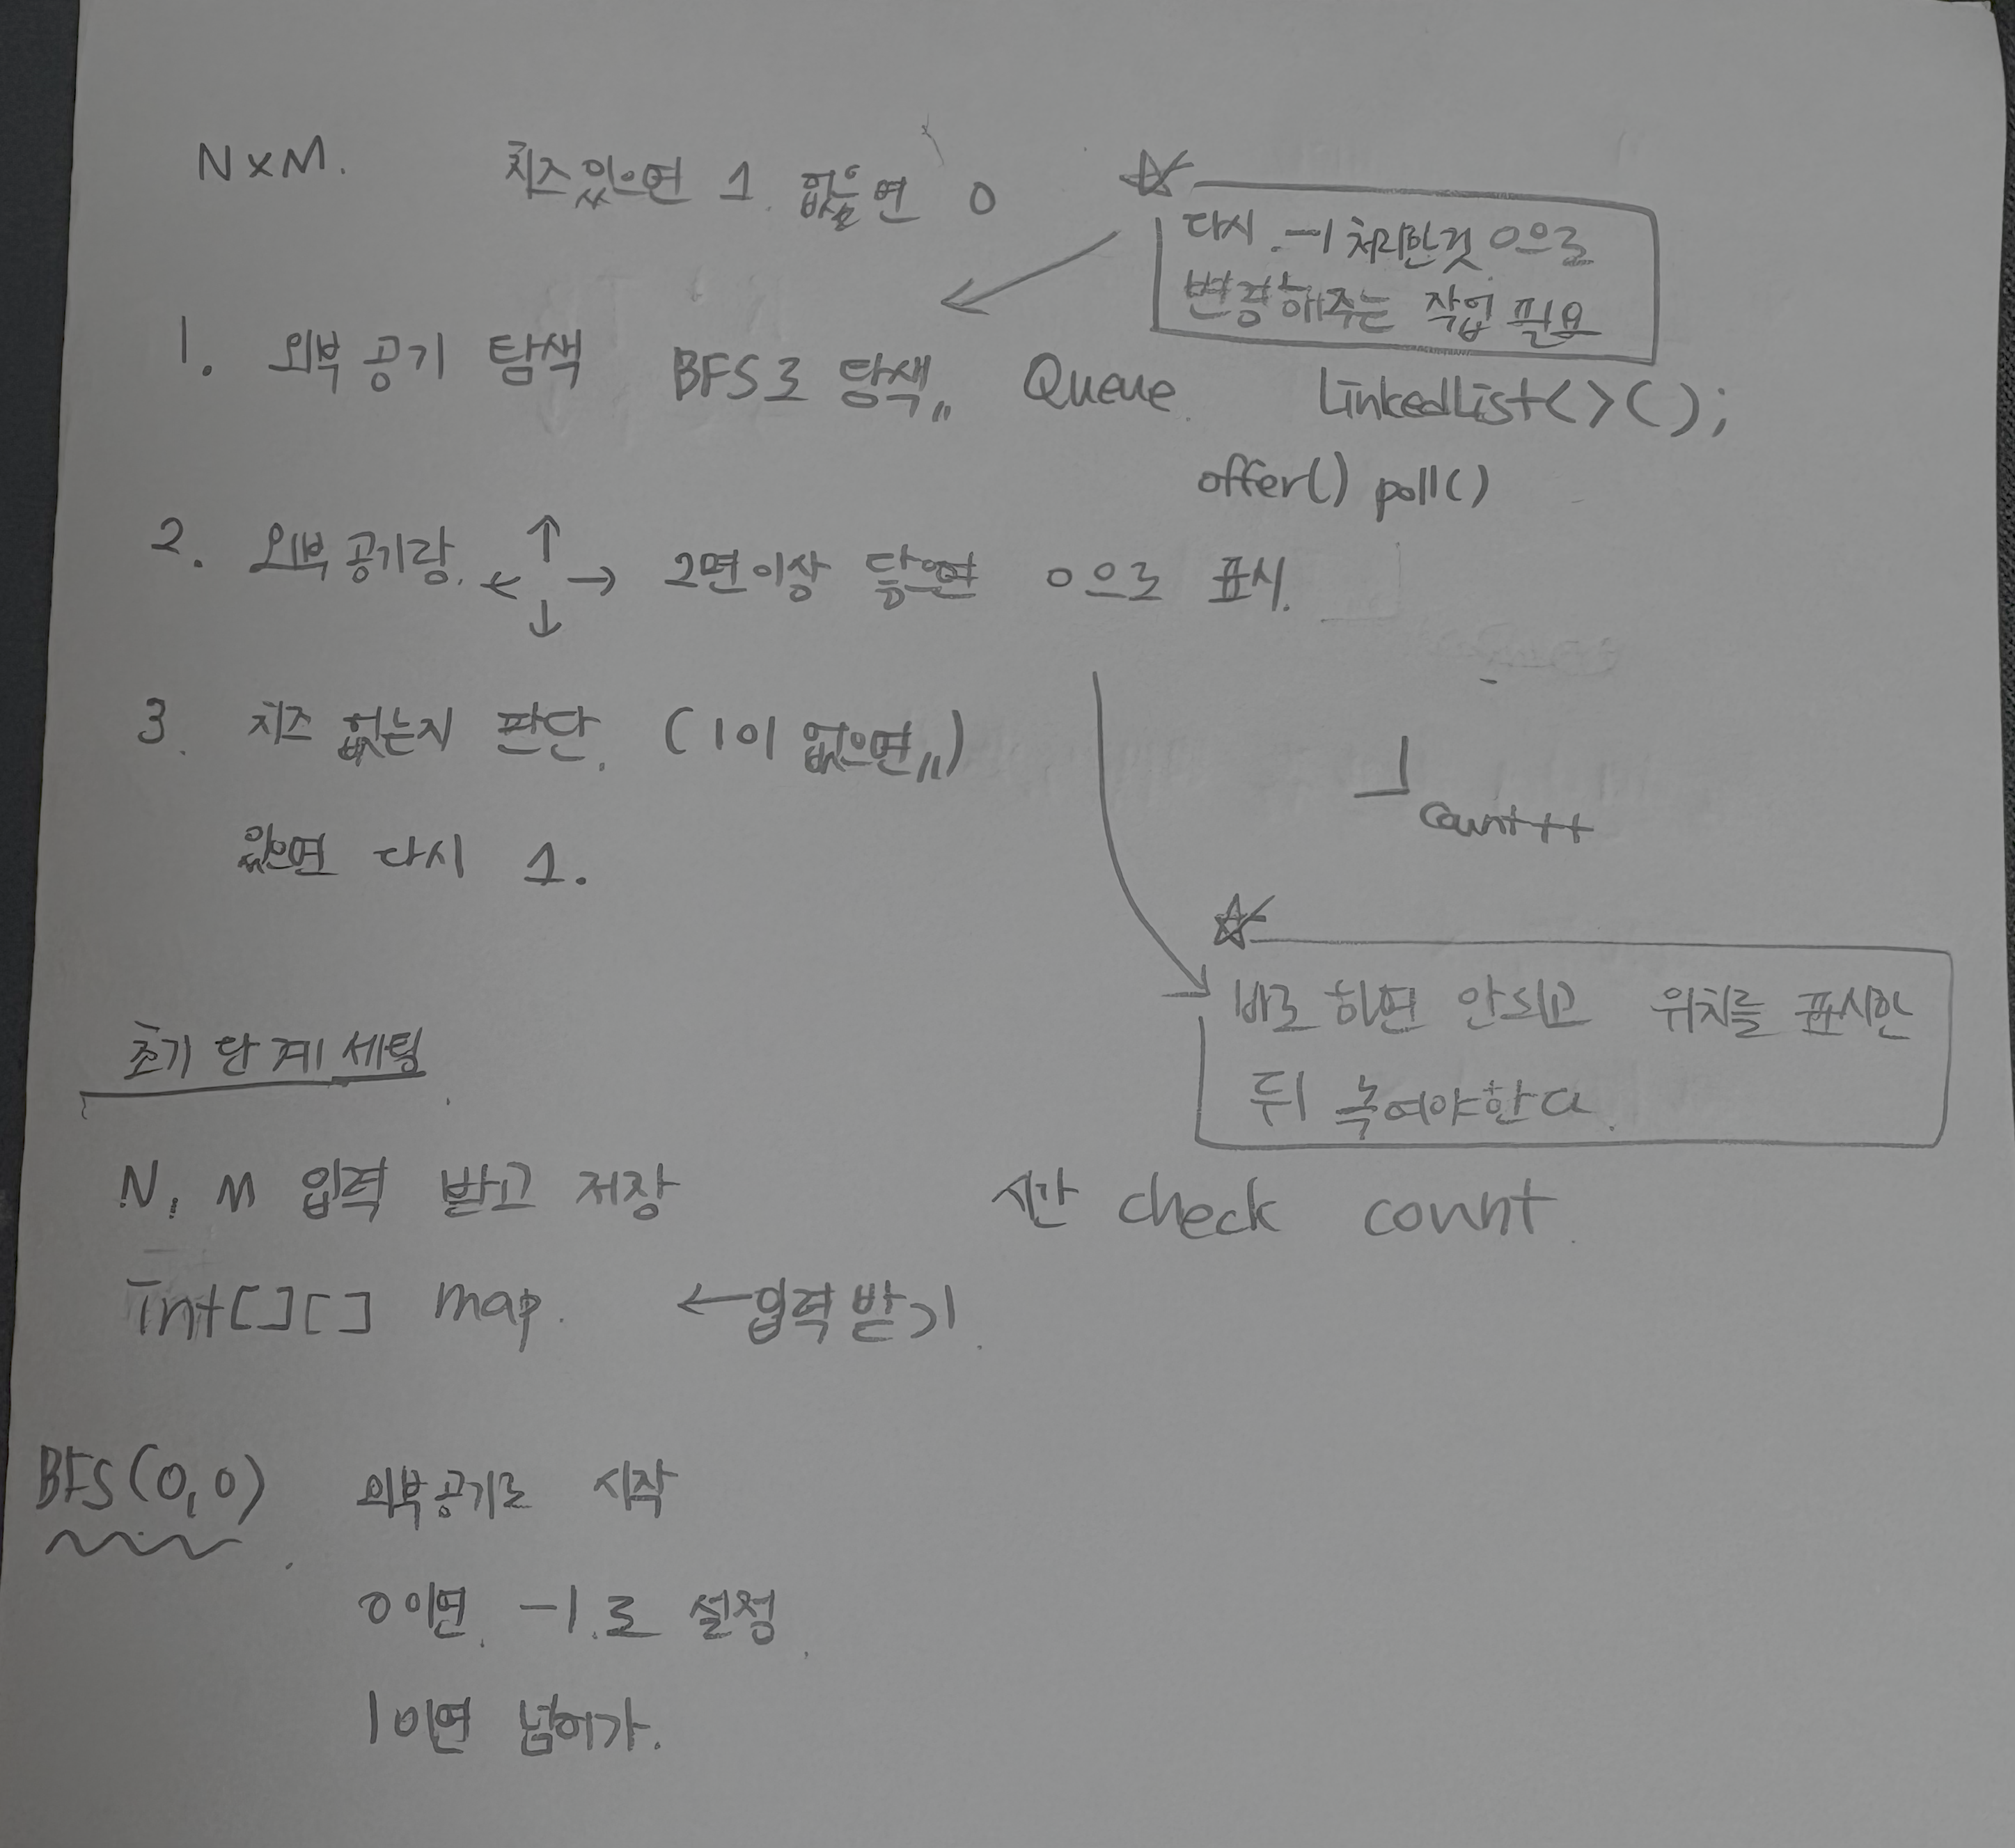 N×M. 치즈있으면 1. 없으면 0
☆ 다시 -1 처리한것 0으로
변경해주는 작업 필요
1. 외부 공기 탐색 BFS로 탐색,, Queue LinkedList<>();
offer() poll()
2. 외부 공기랑 ← ↑ ↓ → 2면이상 닿으면 0으로 표시.
3. 치즈 없는지 판단. (1이 없으면,,)
count++
있으면 다시 1.
☆ 바로 하면 안되고 위치를 표시한
뒤 녹여야한다.
초기 단계 세팅
N, M 입력 받고 저장
시간 check count
int[][] map. ← 입력 받기.
BFS(0,0) 외부공기로 시작
0이면 -1로 설정.
1이면 넘어가.